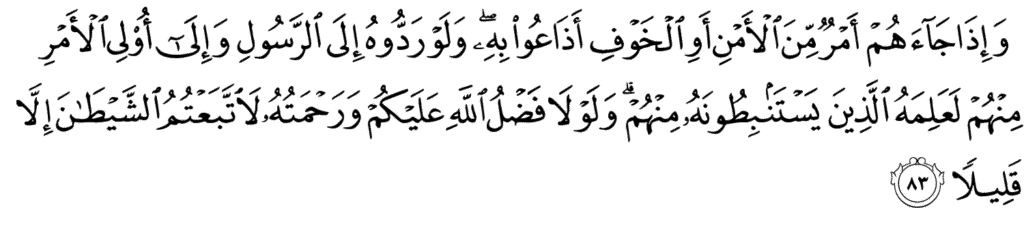 وَإِذَا جَآءَهُمْ أَمْرٌ مِّنَ ٱلْأَمْنِ أَوِ ٱلْخَوْفِ أَذَاعُوا۟ بِهِۦ ۖ وَلَوْ رَدُّوهُ إِلَى ٱلرَّسُولِ وَإِلَىٰٓ أُو۟لِى ٱلْأَمْرِ
مِنْهُمْ لَعَلِمَهُ ٱلَّذِينَ يَسْتَنۢبِطُونَهُۥ مِنْهُمْ ۗ وَلَوْلَا فَضْلُ ٱللَّهِ عَلَيْكُمْ وَرَحْمَتُهُۥ لَٱتَّبَعْتُمُ ٱلشَّيْطَـٰنَ إِلَّا
قَلِيلًا ٨٣